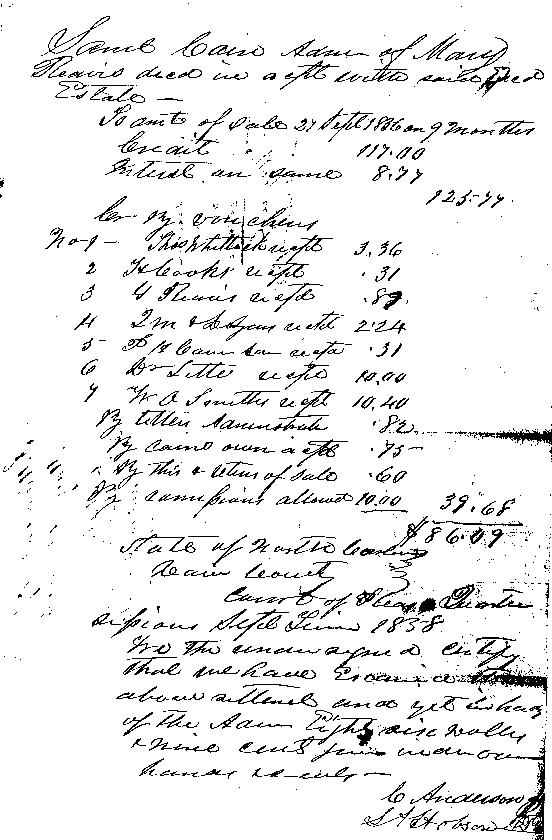 Saml Cain Adm of Mary
Reavis decd in acpt with said Decd
Estate —
To amt of Sale 27 Sept 1836 on 9 months
Credit 117.00
Interest on same 8.77
125.77
Cr By vouchers
No 1 — Thos Whitlock recpt 3.36
2 H Cooks recpt .31
3 Reavis recpt .89
4 recpt 2.24
5 recpt .31
6 Dr Little recpt 10.00
7 W O Smiths recpt 10.40
By letters Administrate .82
By same own acpt .75
By this & return of sale .60
By comissions allowed 10.00 39.68
$86.09
State of North Carolina
County
Court of Pleas Quarter
sessions Sept Term 1838
We the undersigned certify
that we have Examined the
above settlement and yet in hands
of the Adm Eighty six dollars
& nine cents given under our
hands
C Anderson
S A Hobson